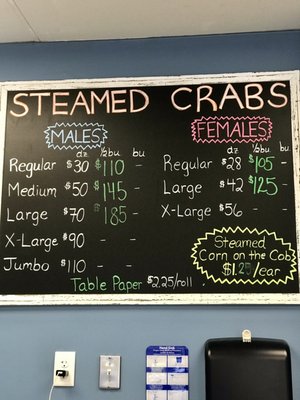 STEAMED CRABS
MALES
dz ½bu. bu
Regular $30 $110 -
Medium $50 $145 -
Large $70 $185 -
X-Large $90 - -
Jumbo $110 - -
FEMALES
dz ½bu. bu.
Regular $28 $105 -
Large $42 $125 -
X-Large $56 - -
Steamed
Corn on the Cob
$1.25/ear
Table Paper $2.25/roll